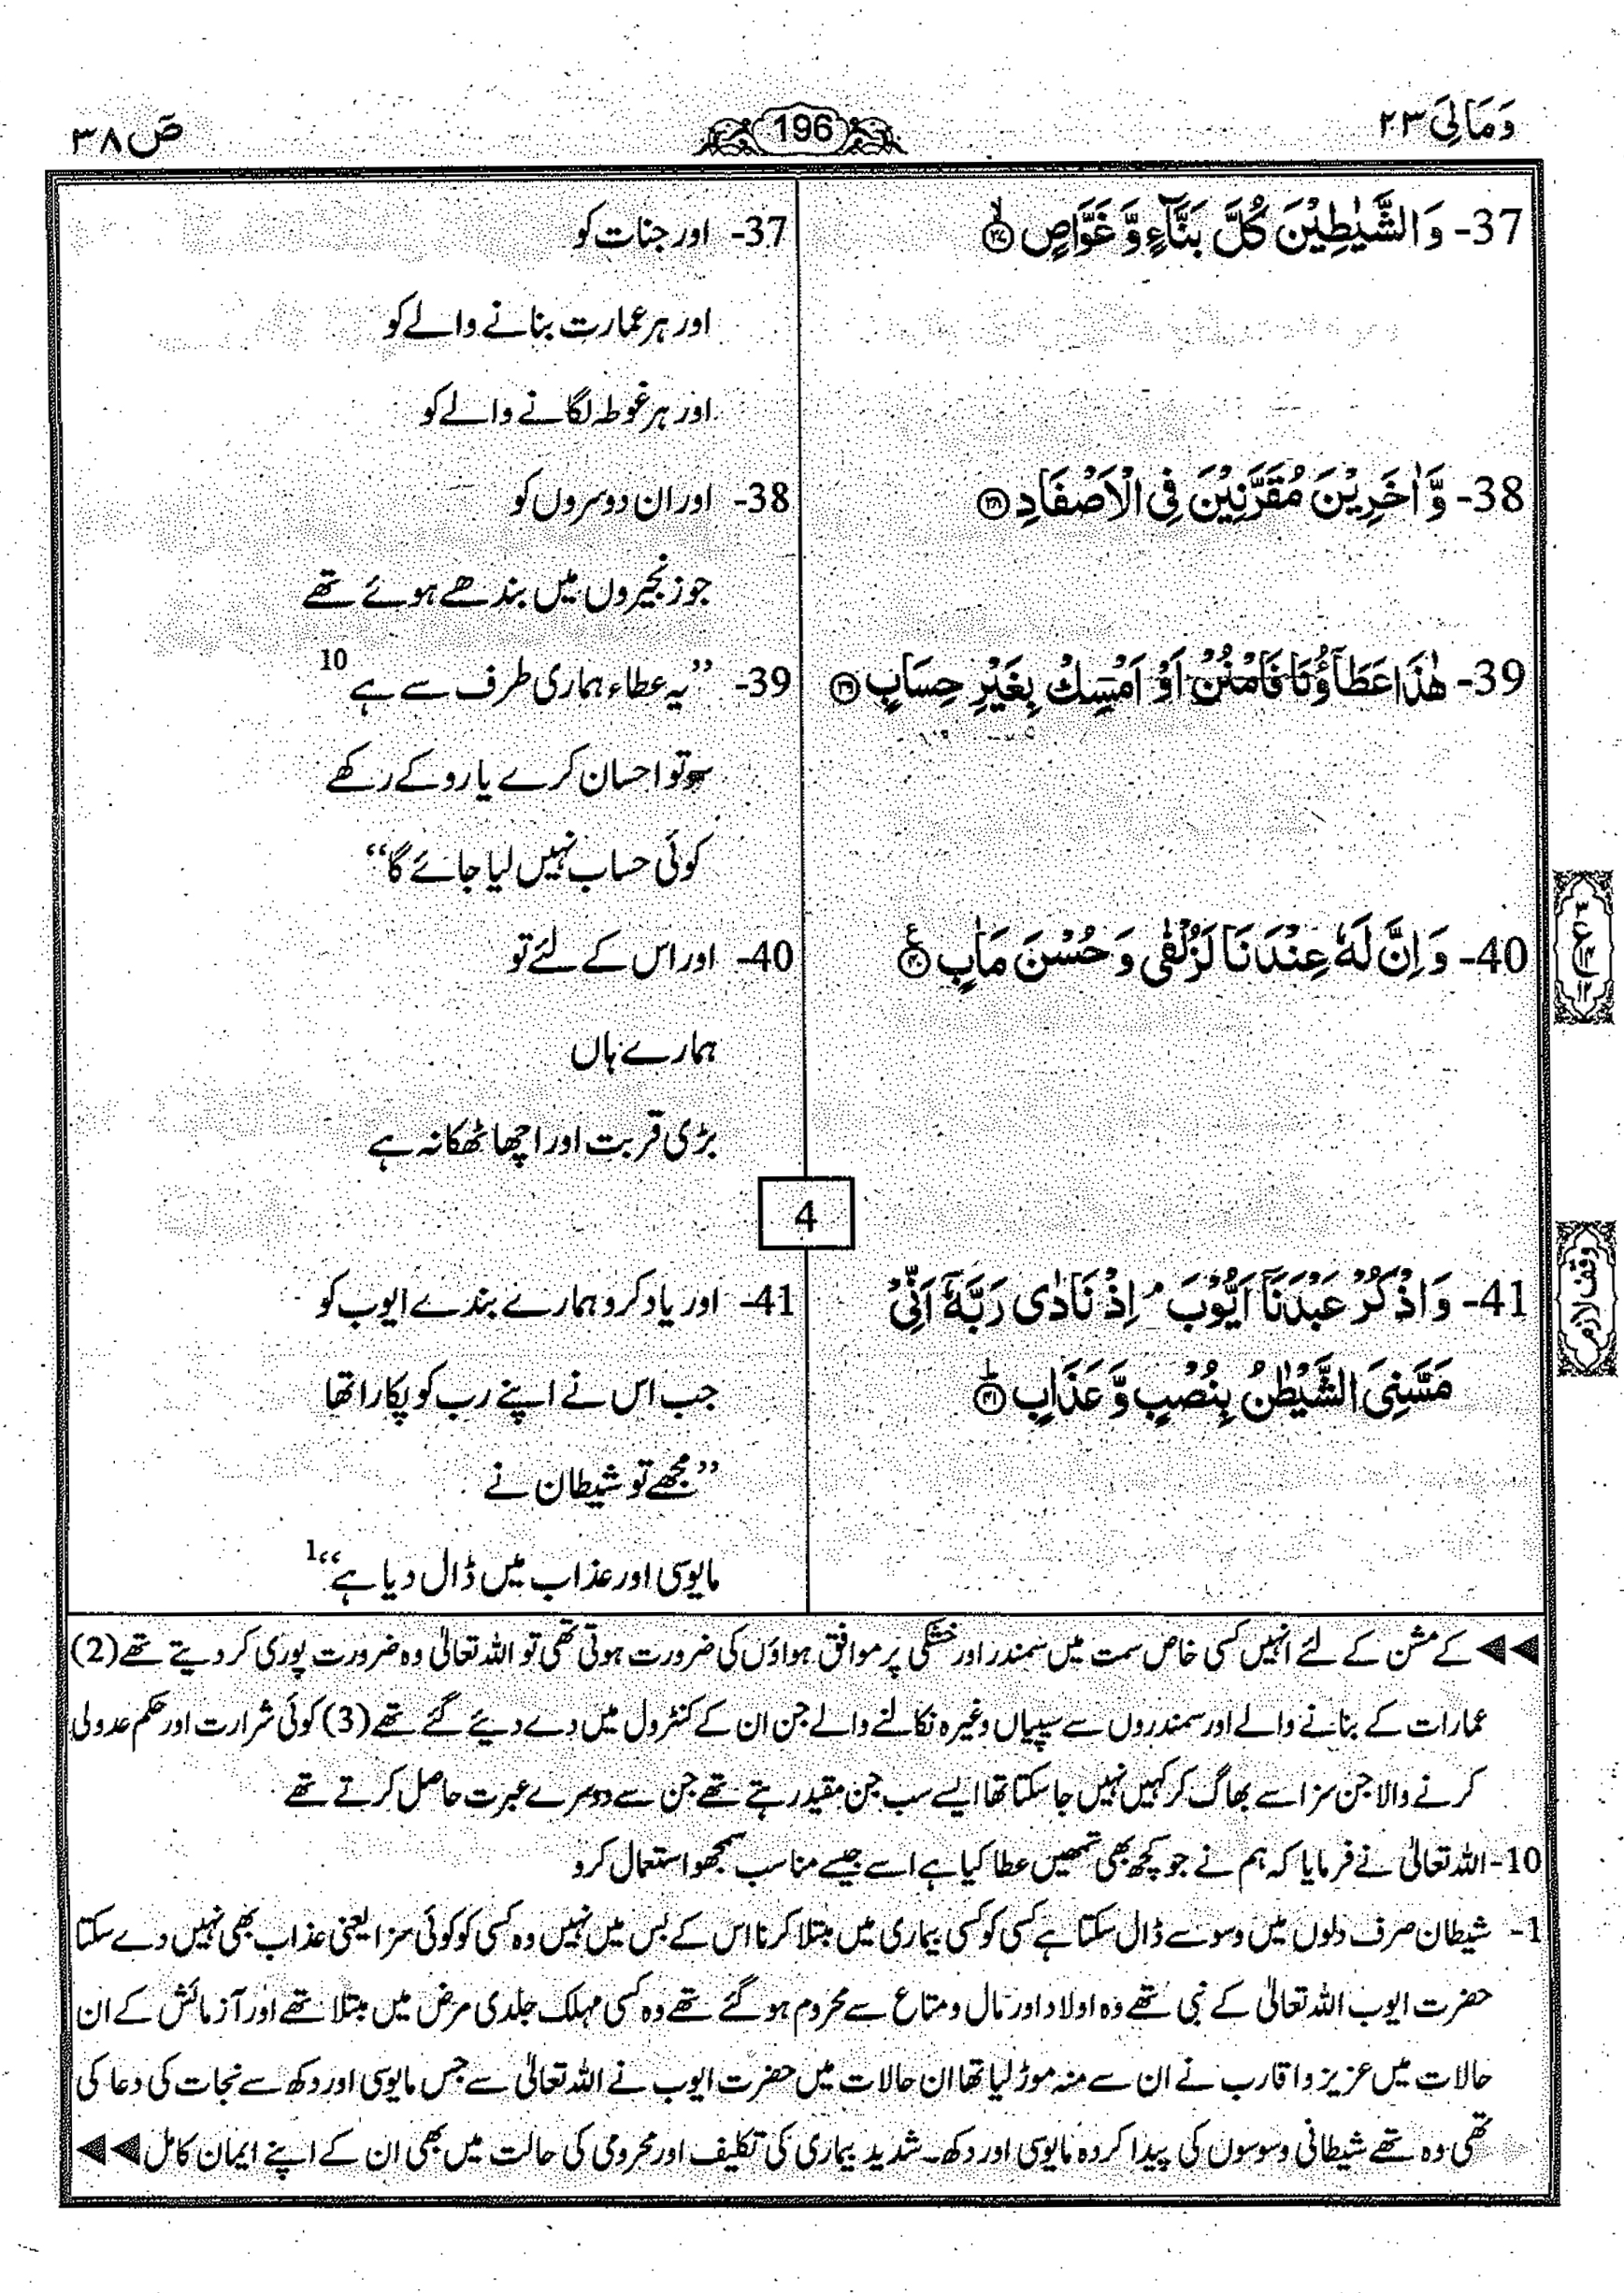 وَمَالِیَ ۲۳
196
صٓ ۳۸
37- وَالشَّيٰطِيْنَ كُلَّ بَنَّآءٍ وَّ غَوَّاصٍ ۙ‏﴿۳۷﴾
37- اور جنات کو
اور ہر عمارت بنانے والے کو
اور ہر غوطہ لگانے والے کو
38- وَّ اٰخَرِيْنَ مُقَرَّنِيْنَ فِى الْاَصْفَادِ ﴿۳۸﴾
38- اور ان دوسروں کو
جو زنجیروں میں بندھے ہوئے تھے
39- هٰذَا عَطَآؤُنَا فَامْنُنْ اَوْ اَمْسِكْ بِغَيْرِ حِسَابٍ ﴿۳۹﴾
39- ’’یہ عطاء ہماری طرف سے ہے 10
سو تو احسان کرے یا روکے رکھے
کوئی حساب نہیں لیا جائے گا‘‘
40- وَ اِنَّ لَهٗ عِنْدَنَا لَزُلْفٰى وَ حُسْنَ مَاٰبٍ ﴿۴۰﴾ ع
40- اور اس کے لئے تو
ہمارے ہاں
بڑی قربت اور اچھا ٹھکانہ ہے
4
41- وَ اذْكُرْ عَبْدَنَاۤ اَيُّوْبَ ۘ اِذْ نَادٰى رَبَّهٗۤ اَنِّىْ
مَسَّنِىَ الشَّيْطٰنُ بِنُصْبٍ وَّ عَذَابٍ ؕ‏﴿۴۱﴾
41- اور یاد کرو ہمارے بندے ایوب کو
جب اس نے اپنے رب کو پکارا تھا
’’مجھے تو شیطان نے
مایوسی اور عذاب میں ڈال دیا ہے‘‘ 1
وقف لازم
◀◀ کے مشن کے لئے انہیں کسی خاص سمت میں سمندر اور خشکی پر موافق ہواؤں کی ضرورت ہوتی تھی تو اللہ تعالیٰ وہ ضرورت پوری کر دیتے تھے (2)
عمارات کے بنانے والے اور سمندروں سے سیپیاں وغیرہ نکالنے والے جن ان کے کنٹرول میں دے دیئے گئے تھے (3) کوئی شرارت اور حکم عدولی
کرنے والا جن سزا سے بھاگ کر کہیں نہیں جا سکتا تھا ایسے سب جن مقید رہتے تھے جن سے دوسرے عبرت حاصل کرتے تھے
10- اللہ تعالیٰ نے فرمایا کہ ہم نے جو کچھ بھی تمھیں عطا کیا ہے اسے جیسے مناسب سمجھو استعمال کرو
1- شیطان صرف دلوں میں وسوسے ڈال سکتا ہے کسی کو کسی بیماری میں مبتلا کرنا اس کے بس میں نہیں وہ کسی کو کوئی سزا یعنی عذاب بھی نہیں دے سکتا
حضرت ایوب اللہ تعالیٰ کے نبی تھے وہ اولاد اور مال و متاع سے محروم ہو گئے تھے وہ کسی مہلک جلدی مرض میں مبتلا تھے اور آزمائش کے ان
حالات میں عزیز و اقارب نے ان سے منہ موڑ لیا تھا ان حالات میں حضرت ایوب نے اللہ تعالیٰ سے جس مایوسی اور دکھ سے نجات کی دعا کی
تھی وہ تھے شیطانی وسوسوں کی پیدا کردہ مایوسی اور دکھ۔ شدید بیماری کی تکلیف اور محرومی کی حالت میں بھی ان کے اپنے ایمان کامل ◀◀